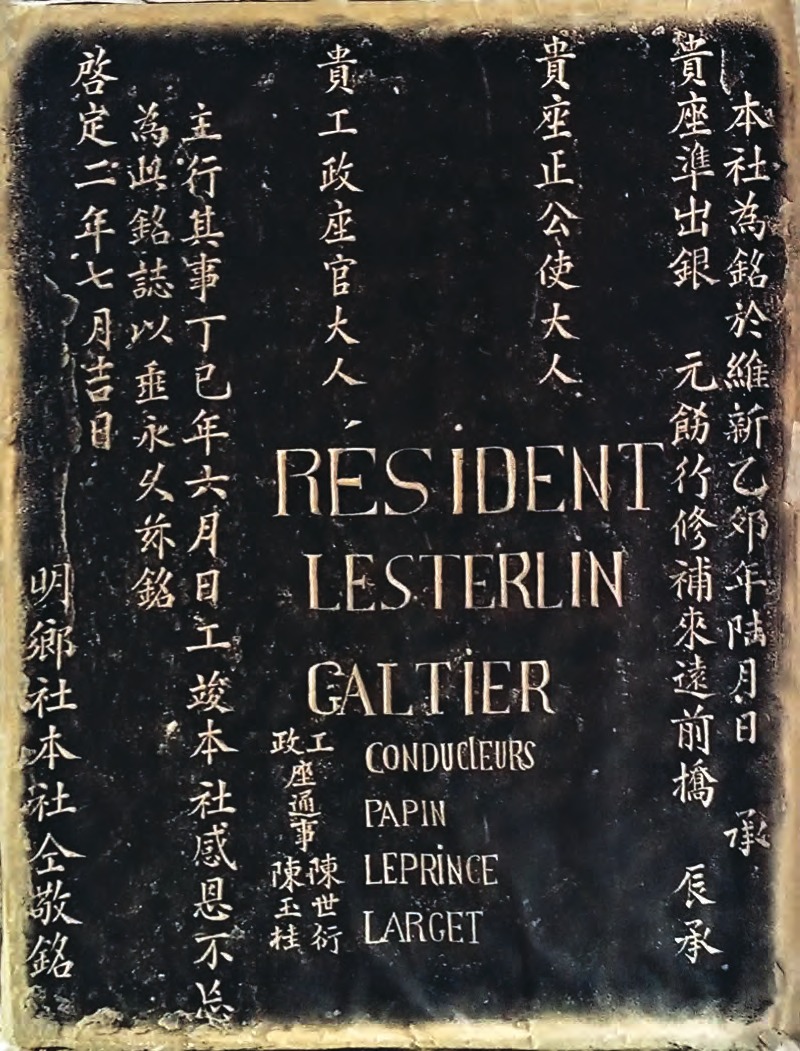 本社為銘於維新乙卯年陸月日 承
貴座準出銀 元飭行修補來遠前橋 辰承
貴座正公使大人
貴工政座官大人
RÉSIDENT
LESTERLIN
GALTIER
CONDUCTEURS
PAPIN
LEPRINCE
LARGET
工政座通事
陳世衍
陳玉桂
主行其事丁巳年六月日工竣本社感恩不忘
為此銘誌以垂永久茲銘
啓定二年七月吉日
明鄉社本社仝敬銘